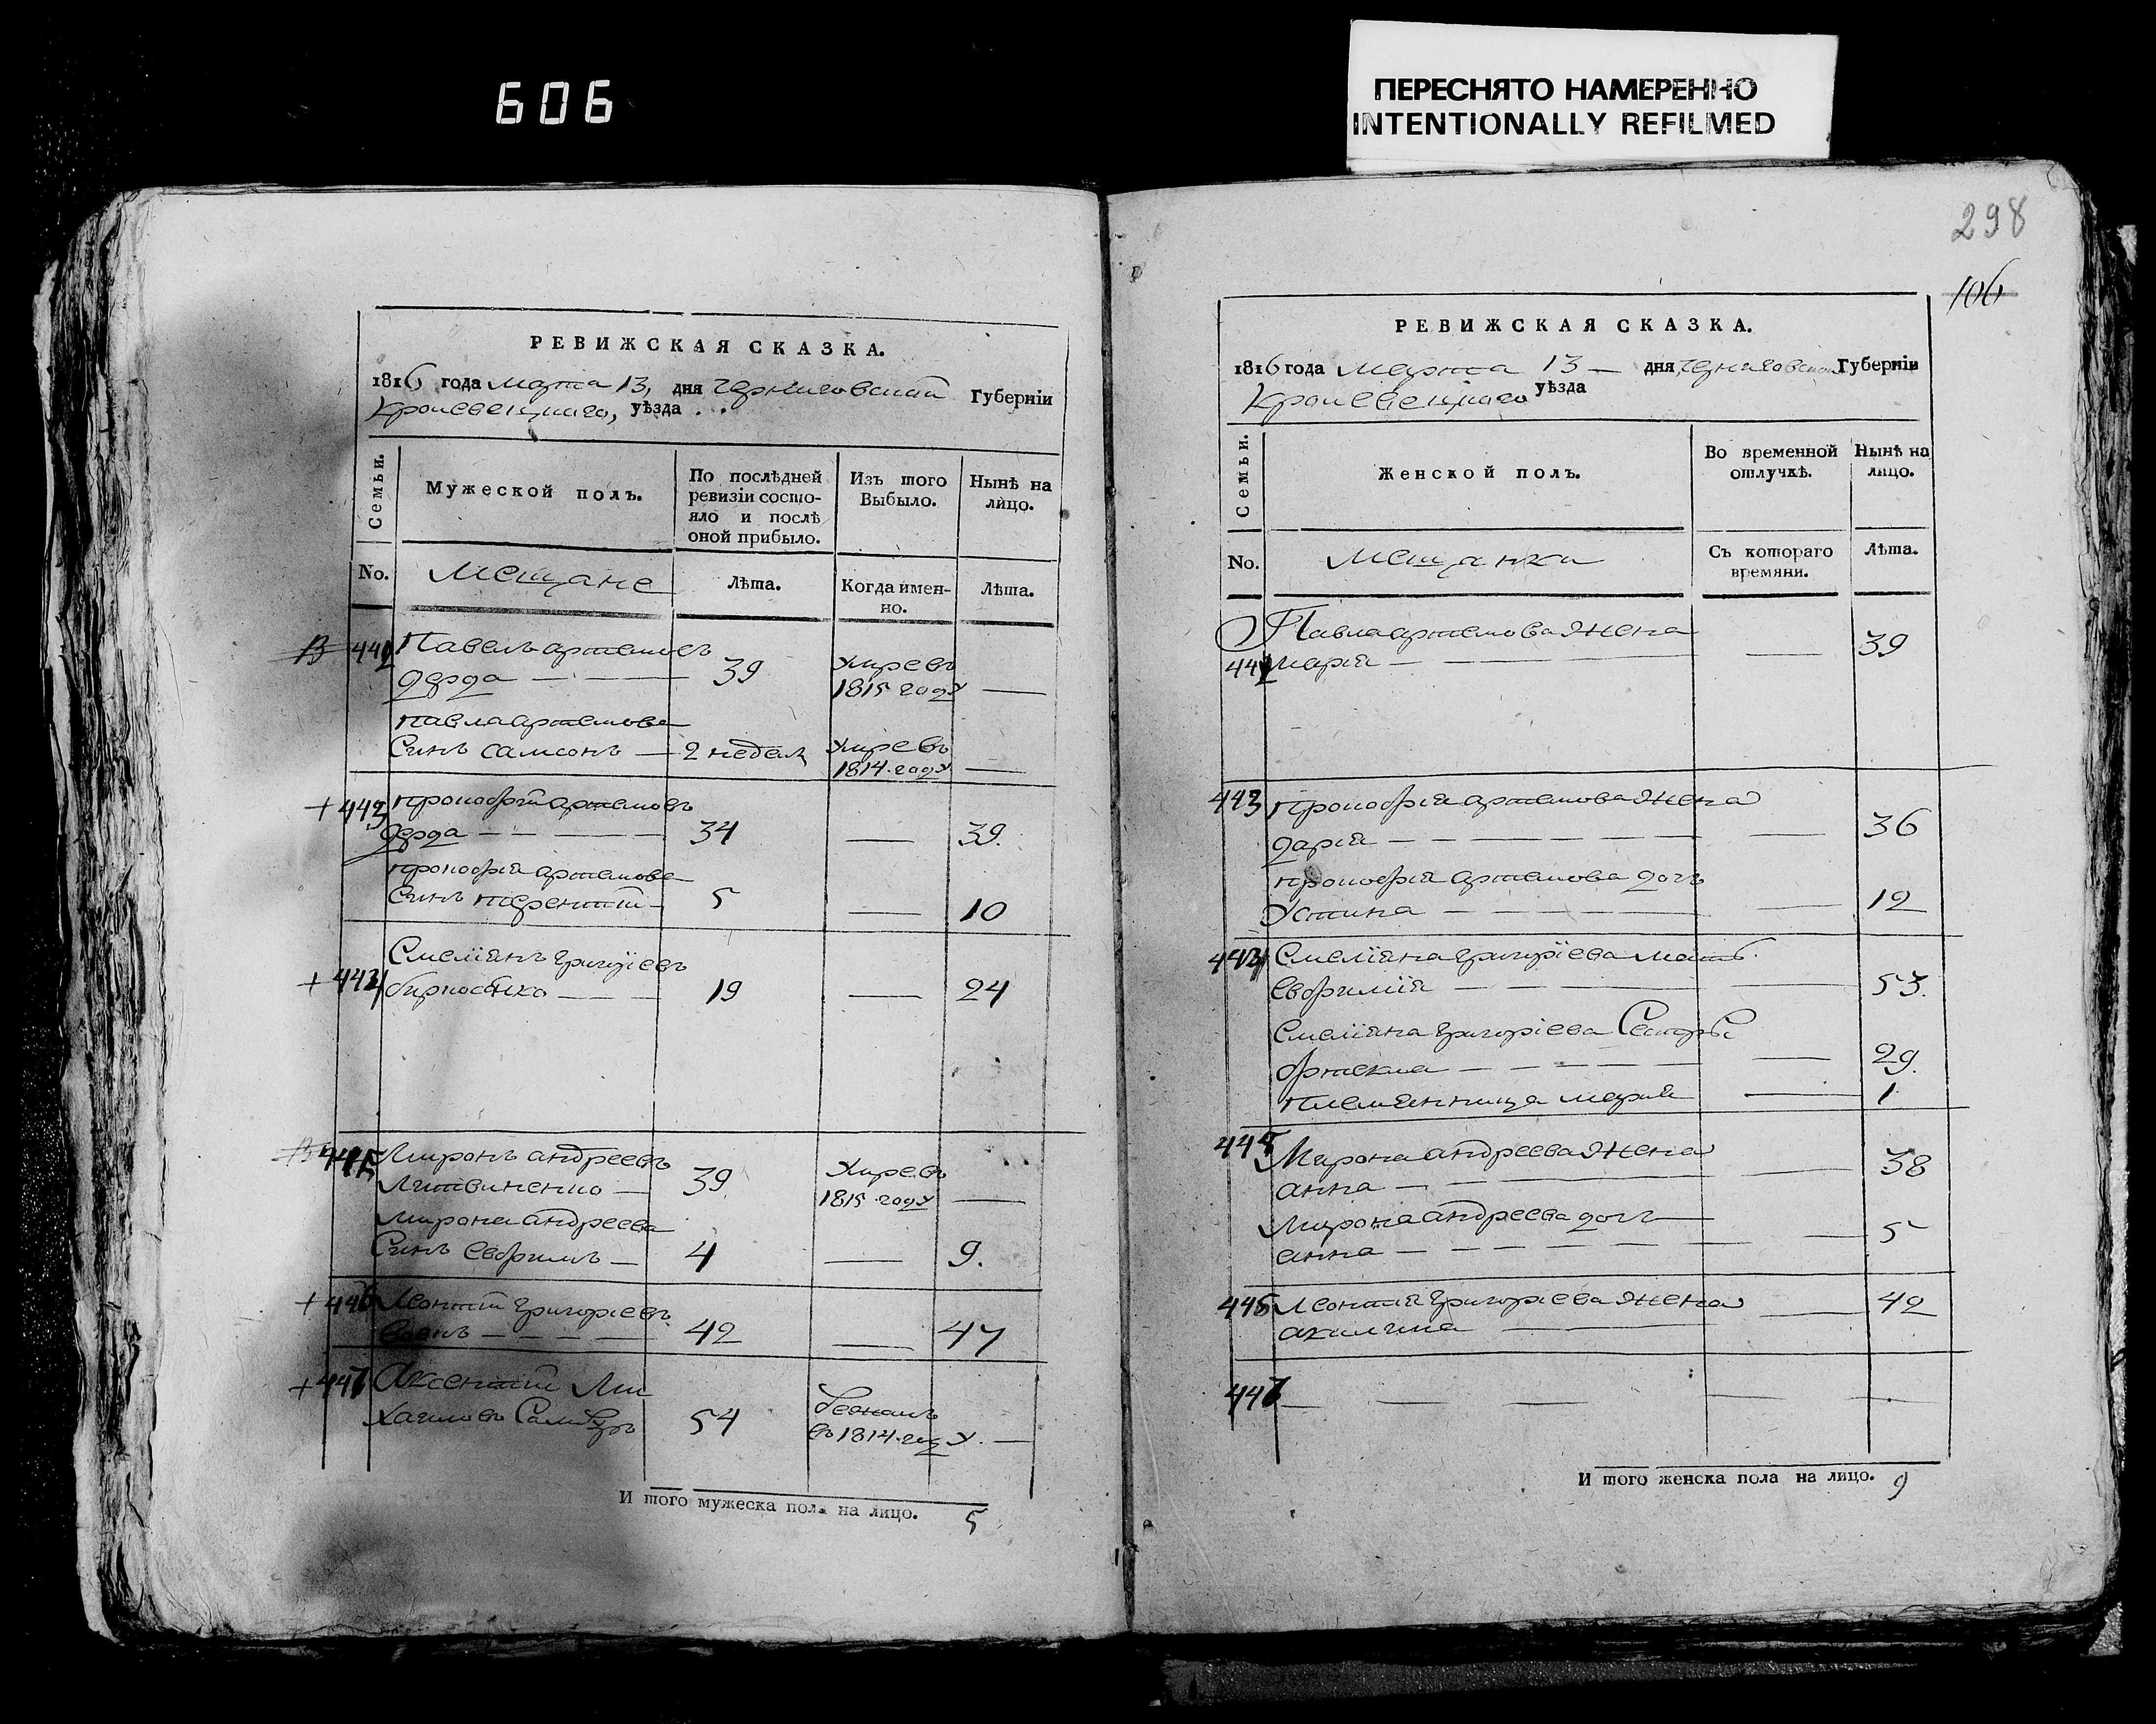 606
ПЕРЕСНЯТО НАМЕРЕННО
INTENTIONALLY REFILMED
РЕВИЖСКАЯ СКАЗКА.
1816 года марта 13, дня Черниговской Губернїи
Кролевецкаго, уѣзда
Семьи.
Мужеской полъ.
По послѣдней ревизїи состо-
яло и послѣ
оной прибыло.
Изъ того
Выбыло.
Нынѣ на
лицо.
No.
Мещане
Лѣта.
Когда имен-
но.
Лѣта.
442 Павелъ артемовъ
дерда 39 умре въ
1815 году
павла артемова
Синъ самсонъ 2 недели умре въ
1814 году
+ 443 прокофій артемовъ
дерда 34 39.
прокофія артемова
Синъ терентій 5 10
+ 444 Смеліянъ григоріевъ
19 24
445 Миронъ андреевъ
Литвиненко 39 умре въ
1815 году
мирона андреева
Синъ Ефримъ 4 9.
+ 446 Леонтій григоріевъ
42 47
+ 447 Аксентій Ми
хаиловъ 54
въ 1814 году.
И того мужеска пола на лицо. 5
298
106
РЕВИЖСКАЯ СКАЗКА.
1816 года марта 13 дня Черниговской Губернїи
Кролевецкаго уѣзда
Семьи.
Женской полъ.
Во временной
отлучкѣ.
Нынѣ на
лицо.
No.
мещанки
Съ котораго
времяни.
Лѣта.
Павла артемова жена
442 марія 39
443 прокофія артемова жена
дарія 36
прокофія артемова дочь
Устина 12
444 Смеліяна григоріева мать
Ефримія 53.
Смеліяна григоріева Сестры
фтекла 29.
племянница марія 1
445 Мирона андреева жена
анна 38
мирона андреева дочь
анна 5
446 Леонтія григоріева жена 42
акилина
447
И того женска пола на лицо. 9